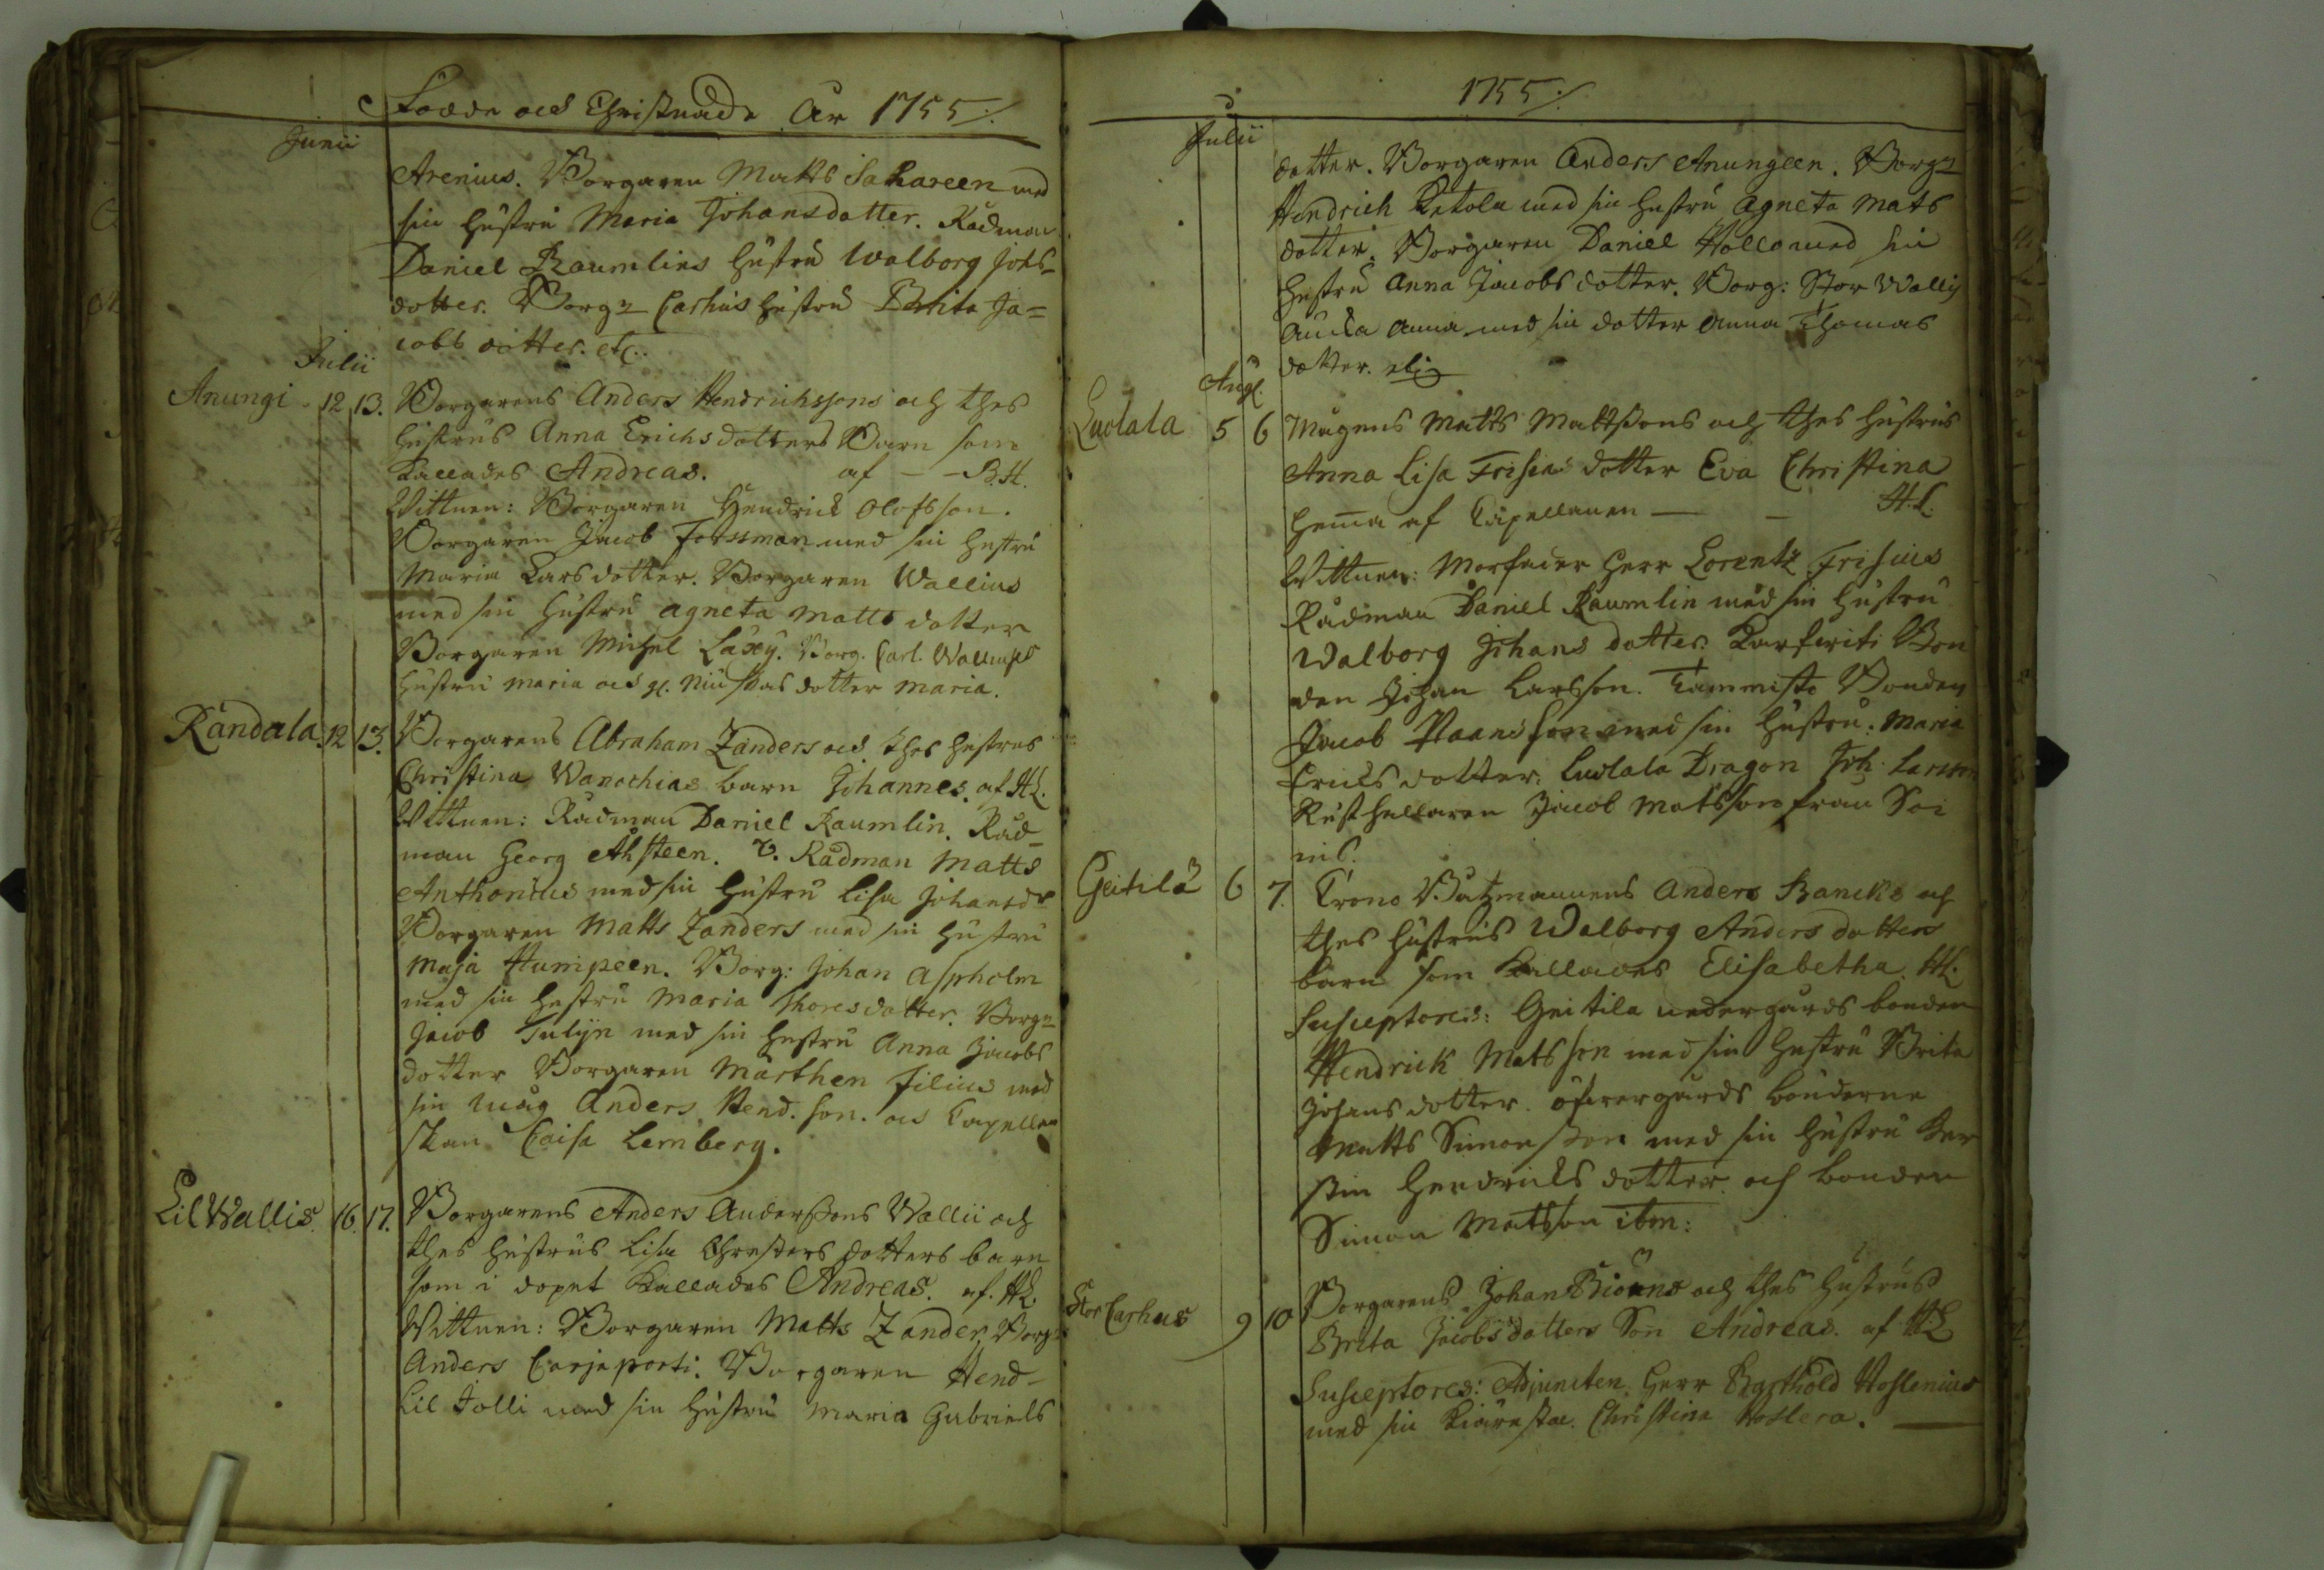 Födde och Christnade År 1755 /.
Junii
Arenius. Borgaren Matts Sahareen med
sin hustru Maria Johansdotter. Rådman
Daniel Raumlins hustru Walborg Johs-
dotter. Borgn Carhus hustru Brita Ja=
cobs dotter. etc.
Julii
Anungi 12 13. Borgarens Anders Hendrichssons och thes
hustrus Anna Erichsdotters Barn som
kallades Andreas. af — — B.H.
Vittnen: Borgaren Hendrick Olofsson.
Borgaren Jacob Forssman med sin hustru
Maria Larsdotter. Borgaren Wallius
med sin hustru Agneta Matts dotter
Borgaren Michel Laxy. Borg. Carl
hustru Maria och dotter Maria.
Randala 12 13. Borgarens Abraham Zanders och thes hustrus
Christina Wanochias barn Johannes. af HL.
Vittnen: Rådman Daniel Raumlin. Råd-
man Georg Ahlsteen. V. Rådman Matts
Anthonius med sin hustru Lisa Johansdr
Borgaren Matts Zanders med sin hustru
Maja Humpeen. Borg: Johan Aspholm
med sin hustru Maria Thoresdotter. Borgn
Jacob Tulijn med sin hustru Anna Jacobs
dotter Borgaren Mårthen Filius med
sin måg Anders Hend. son. och Capellan
skan Caisa Lemberg.
Lil Wallis 16. 17. Borgarens Anders Anderssons Wallii och
thes hustrus Lisa Christers dotters barn
som i dopet kallades Andreas. af. HL.
Vittnen: Borgaren Matts Zander, Borgn
Anders Carjaporti. Borgaren Hend-
Lil Jolli med sin hustru Maria Gabriels
1755 /.
Julii
dotter. Borgaren Anders Anungeen. Borgn
Hendrich Ketola med sin hustru Agneta Mats
dotter. Borgaren Daniel Hollo med sin
hustru Anna Jacobs dotter. Borg: Stor Wallis
Anna med sin dotter Anna Thomas
dotter.
Aug.
Luolala 5 6 Mågens Matts Mattssons och thes hustrus
Anna Lisa Frisias dotter Eva Christina
hema af Capellanen — — H.L.
Vittnen: Morfader Herr Lorentz Frisius
Rådman Daniel Raumlin med sin hustru
Walborg Johans dotter. Bon
den Johan Larsson. Tammisto Bonden
Jacob med sin hustru: Maria
Ericsdotter. Luolala Dragon Joh. Larsson
Rusthållaren Jacob Matsson från Soi
nis.
Geitila 6 7. Crono Båtzmannens Anders Bancks och
thes hustrus Walborg Anders dotters
barn som kallades Elisabetha. HL.
Susceptores: Geitila nedergårds bonden
Hendrick Matsson med sin hustru Brita
Johans dotter. öfvergårds bönderne
Matts Simonsson med sin hustru Ker
stin Hendricks dotter. och bonden
Simon Matsson ibm:
Stor Carhus 9 10 Borgarens Johan Biörns och thes hustrus
Brita Jacobsdotters Son Andreas. af HL
Susceptores: Adjuncten Herr Barthold Hoslenius
med sin kiäresta Christina Hoslera. —